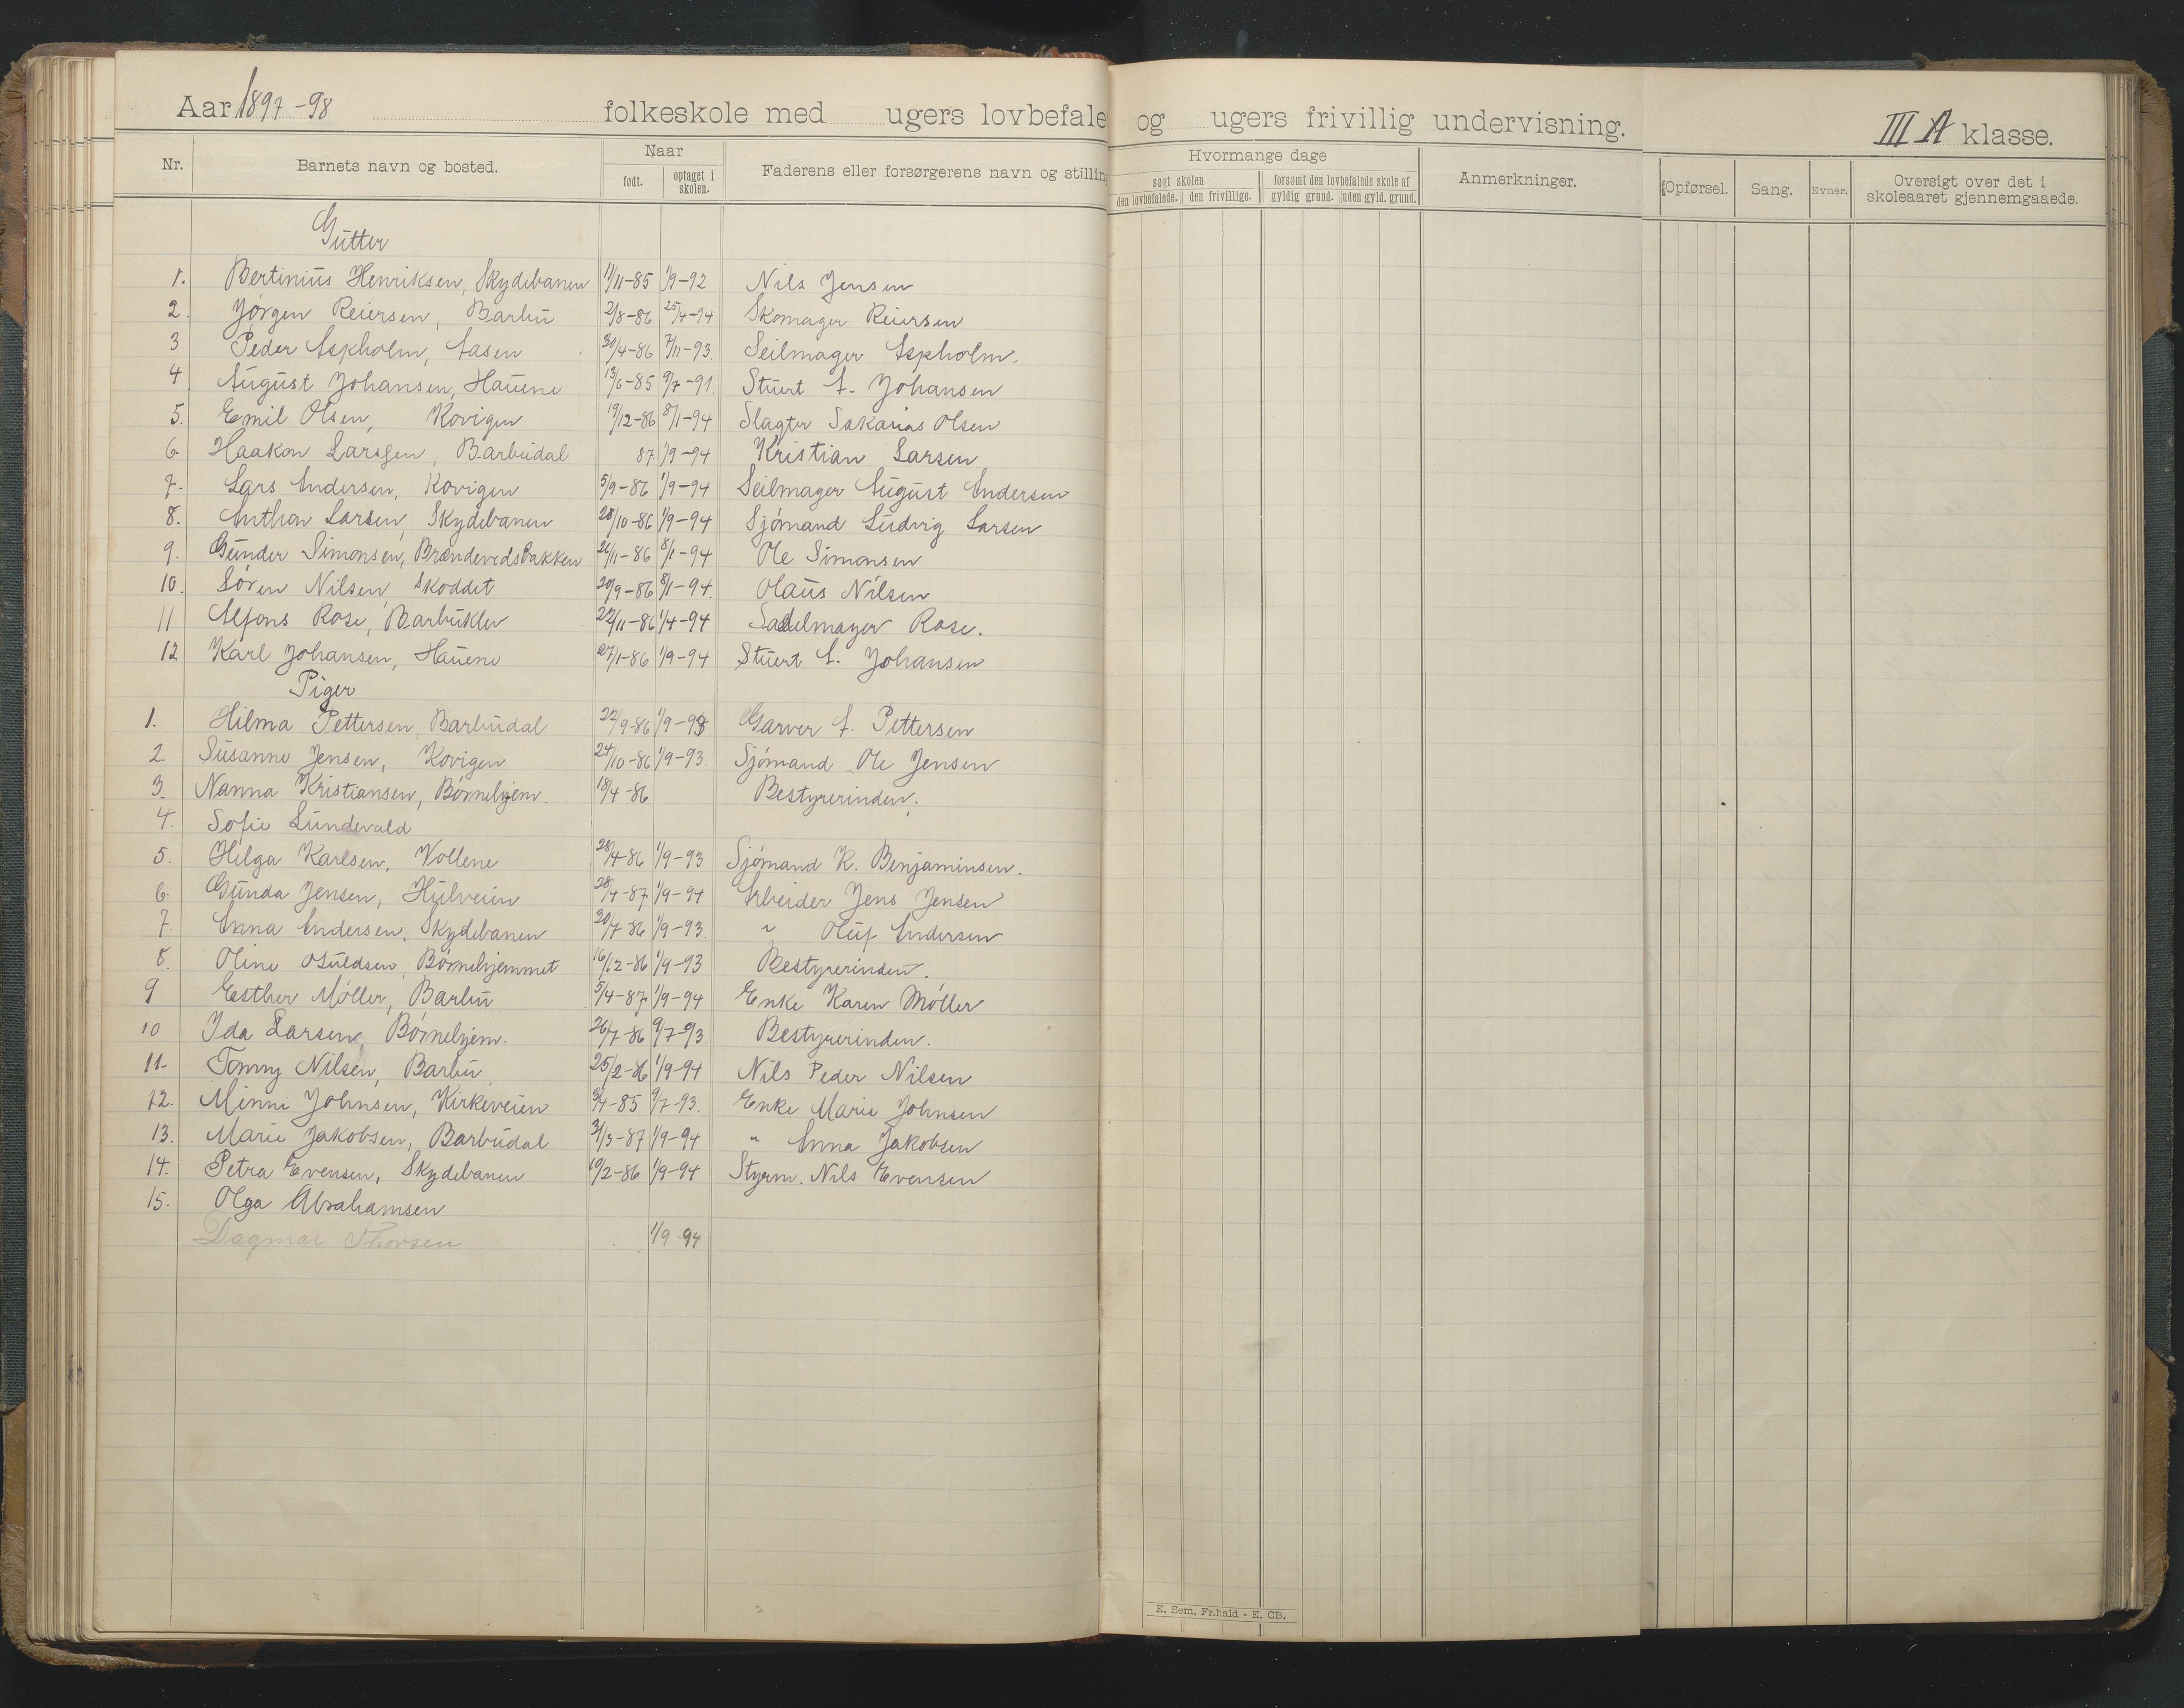 Aar 1897-98 folkeskole med ugers lovbefale og ugers frivillig undervisning. III A klasse.
Nr. Barnets navn og bosted. Naar født. optaget i skolen. Faderens eller forsørgerens navn og stilling Hvormange dage søgt skolen den lovbefalede. den frivillige. forsømt den lovbefalede skole af gyldig grund. uden gyld. grund. Anmerkninger. Opførsel. Sang. Evner. Oversigt over det i skoleaaret gjennemgaaede.
Gutter
1. Bertinius Henriksen, Skydebanen 11/11-85 1/9-92 Nils Jensen
2. Jørgen Reiersen, Barbu 2/8-86 25/4-94 Skomager Reiersen
3 Peder Aspholm, Aasen 30/4-86 7/11-93. Seilmager Aspholm.
4 August Johansen, Hauene 13/6-85 9/7-91 Stuert A. Johansen
5. Emil Olsen, Kovigen 19/12-86 8/1-94 Slagter Sakarias Olsen
6. Haakon Larssen, Barbudal 87 1/9-94 Kristian Larsen
7. Lars Andersen, Kovigen 5/9-86 1/9-94 Seilmager August Andersen
8. Anthon Larsen, Skydebanen 28/10-86 1/9-94 Sjómand Ludvig Larsen
9. Gunder Simonsen, Brændevedsbakken 26/11-86 8/1-94 Ole Simonsen
10. Sóren Nilsen, Skoddet 20/9-86 8/1-94. Olaus Nilsen
11 Alfons Rose, Barbuklev 22/11-86 1/4-94 Sadelmager Rose.
12 Karl Johansen, Hauene 27/1-86 1/9-94 Stuert A. Johansen
Piger
1. Hilma Pettersen, Barbudal 22/9-86 1/9-93 Garver A. Pettersen
2. Susanne Jensen, Kovigen 24/10-86 1/9-93. Sjómand Ole Jensen
3. Nanna Kristiansen, Bórnehjem. 18/4-86 Bestyrerinden.
4. Sofie Lundevald
5. Helga Karlsen, Vollene 28/4-86 1/9-93 Sjómand K. Benjaminsen.
6. Gunda Jensen, Hulveien 28/4-87 1/9-94 Arbeider Jens Jensen
7. Anna Andersen, Skydebanen 30/7-86 1/9-93. " Oluf Andersen
8. Oline Osuldsen, Bórnehjemmet 16/12-86 1/9-93 Bestyrerinden.
9 Esther Móller, Barbu 5/4-87 1/9-94 Enke Karen Móller
10 Ida Larsen, Bórnehjem. 26/7-86 9/7-93. Bestyrerinden.
11. Tonny Nilsen, Barbu 25/2-86 1/9-94 Nils Peder Nilsen
12. Minni Johnsen, Kirkeveien 3/4-85 9/7-93. Enke Marie Johnsen
13. Marie Jakobsen, Barbudal 31/3-87 1/9-94 " Anna Jakobsen
14. Petra Evensen, Skydebanen 19/2-86 1/9-94 Styrm. Nils Evensen
15. Olga Abrahamsen
Dagmar Thorsen 1/9 94
E. Sem, Fr.hald - E. CB.